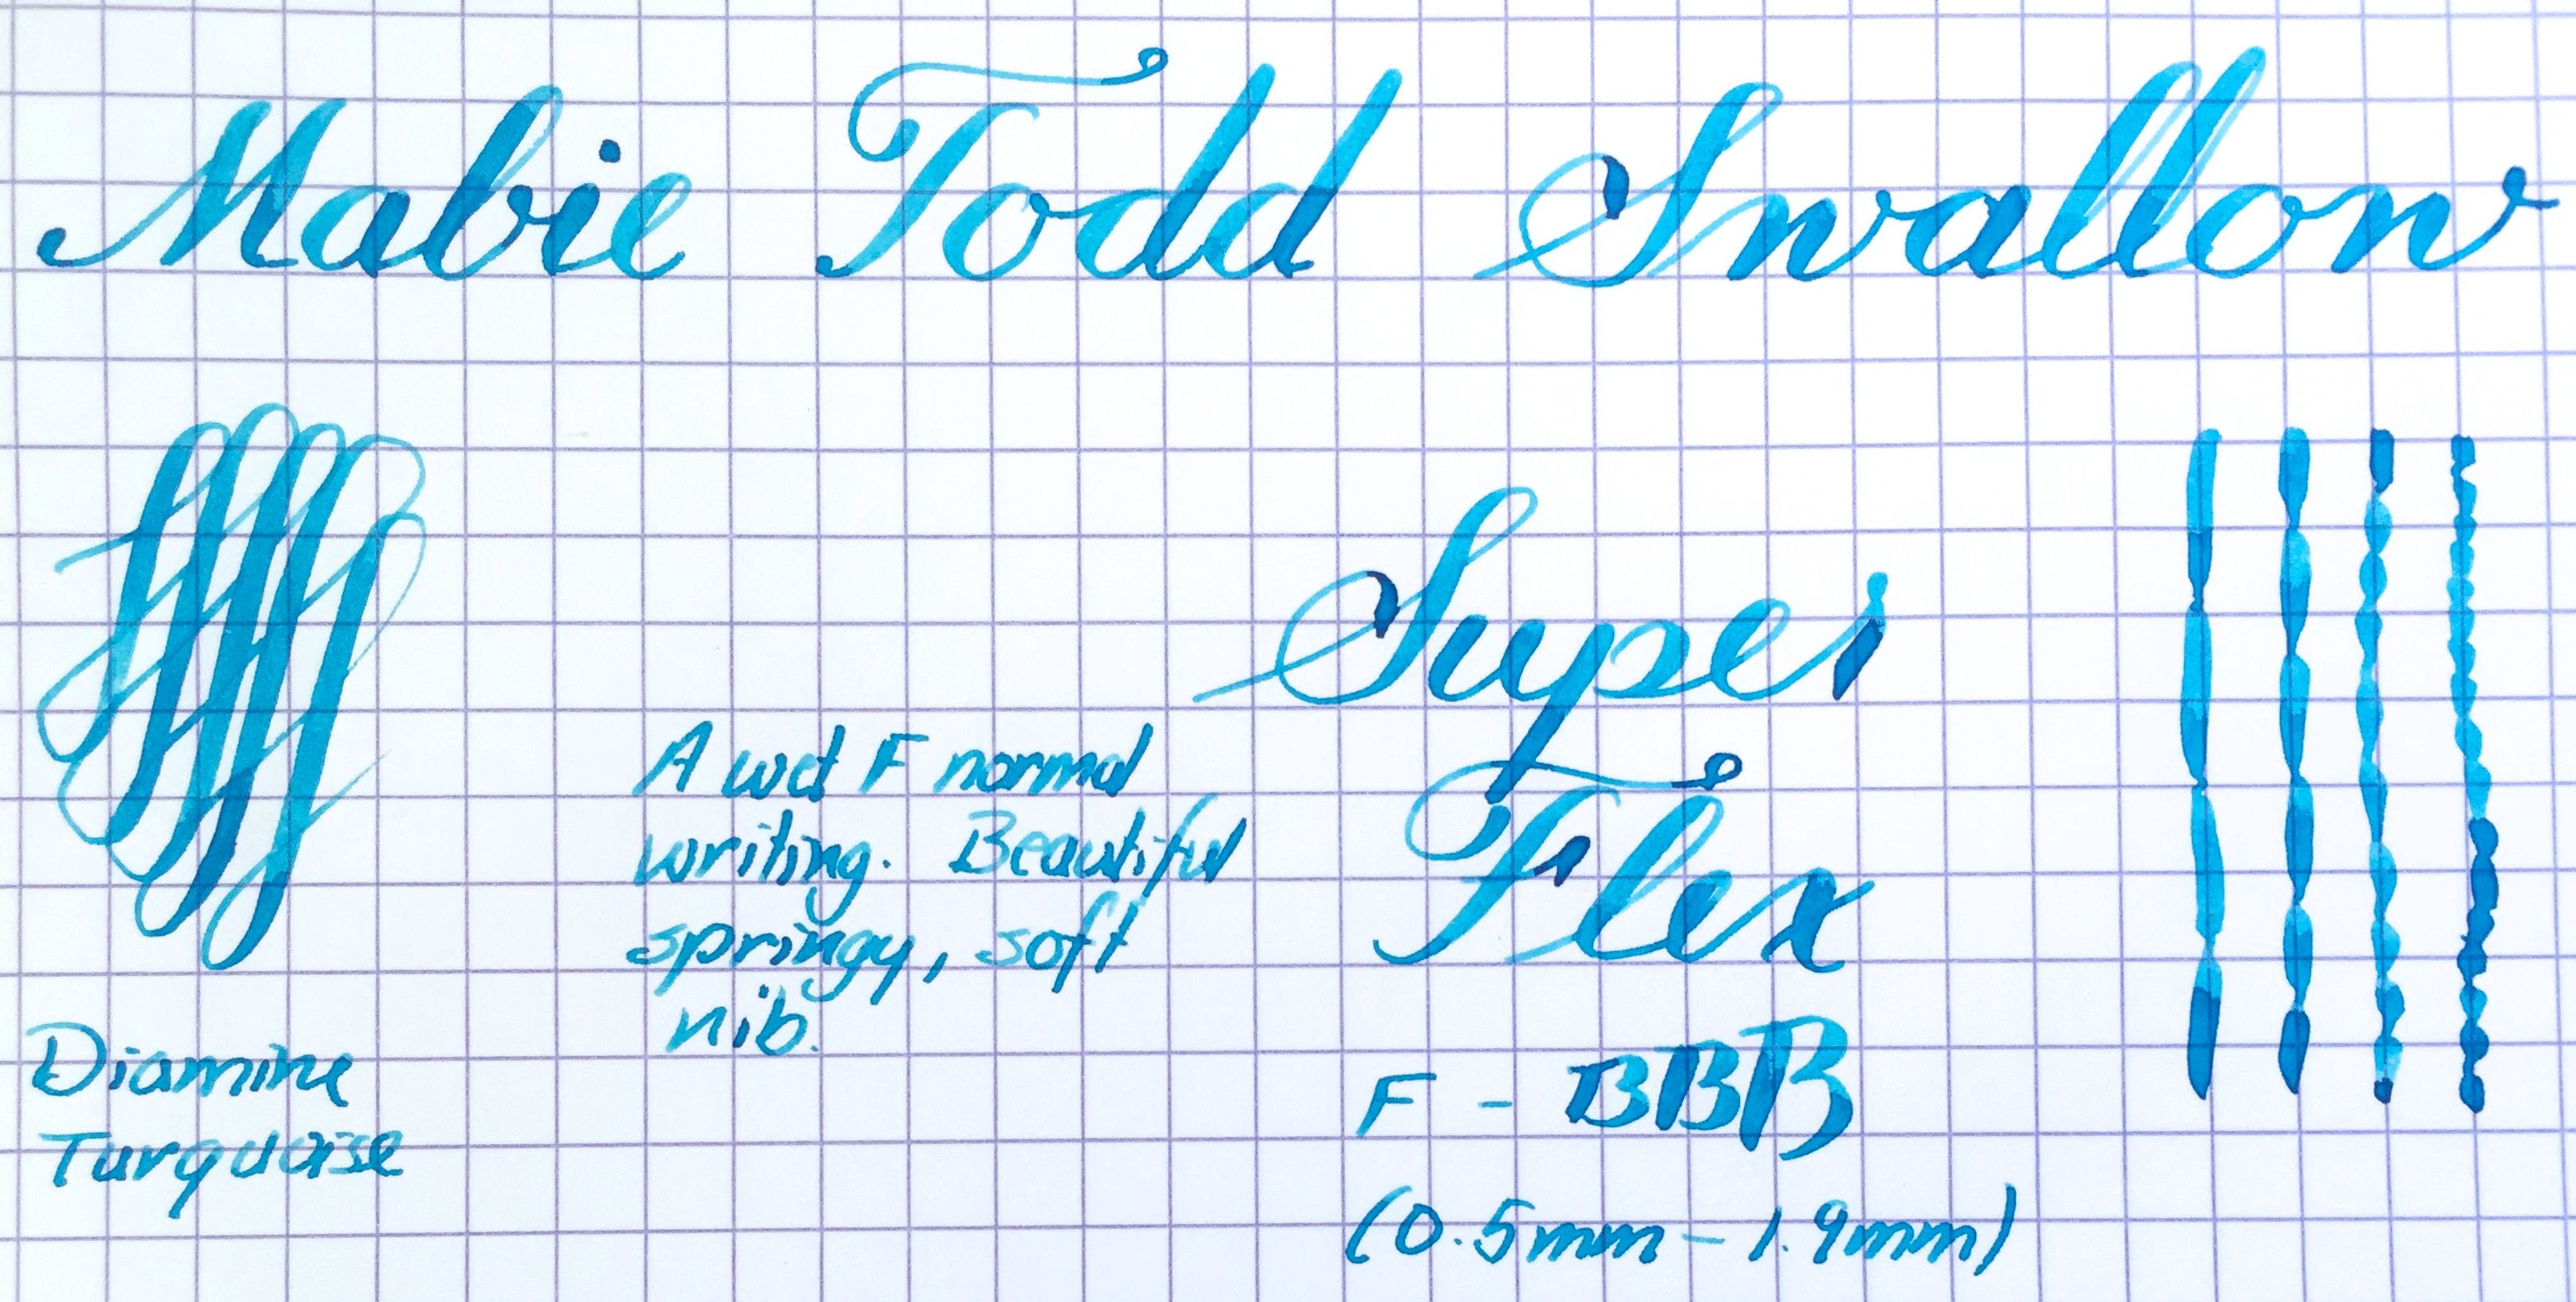 Mabie Todd Swallow
Super
Flex
A wet F normal
writing. Beautiful
springy, soft
nib.
F - BBB
(0.5mm - 1.9mm)
Diamine
Turquoise